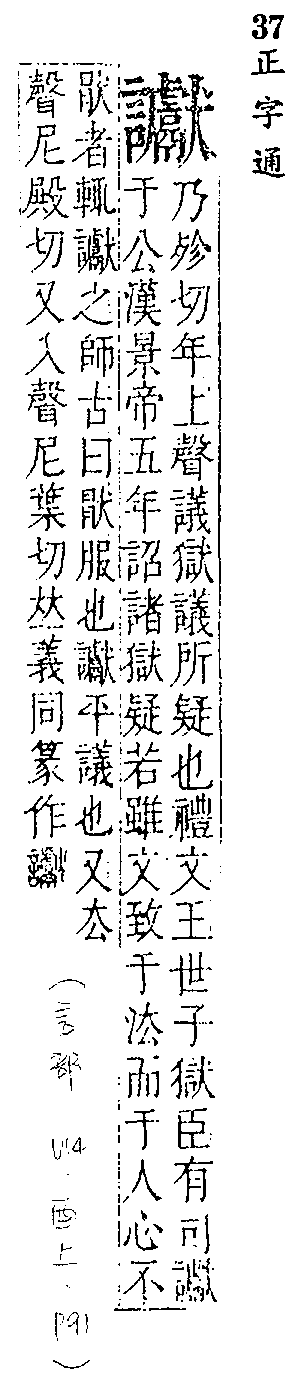 37正字通
讞乃殄切年上聲議獄議所疑也禮文王世子獄臣有司讞
于公漢景帝五年詔諸獄疑若雖文致于法而于人心不
厭者輒讞之師古曰厭服也讞平議也又去
聲尼殿切又入聲尼葉切𠀤義同篆作讞
(言部 酉上.P91)